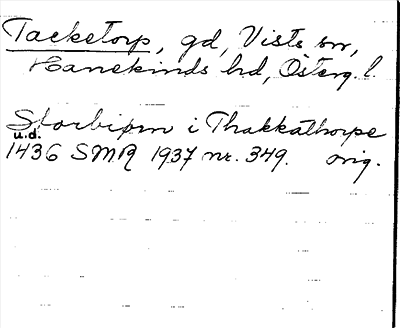 Tacketorp, gd, Vists sn,
Hanekinds hd, Österg. l.
Storbiørn i Thakkathorpe
u.d.
1436 SMR 1937 nr. 349. orig.